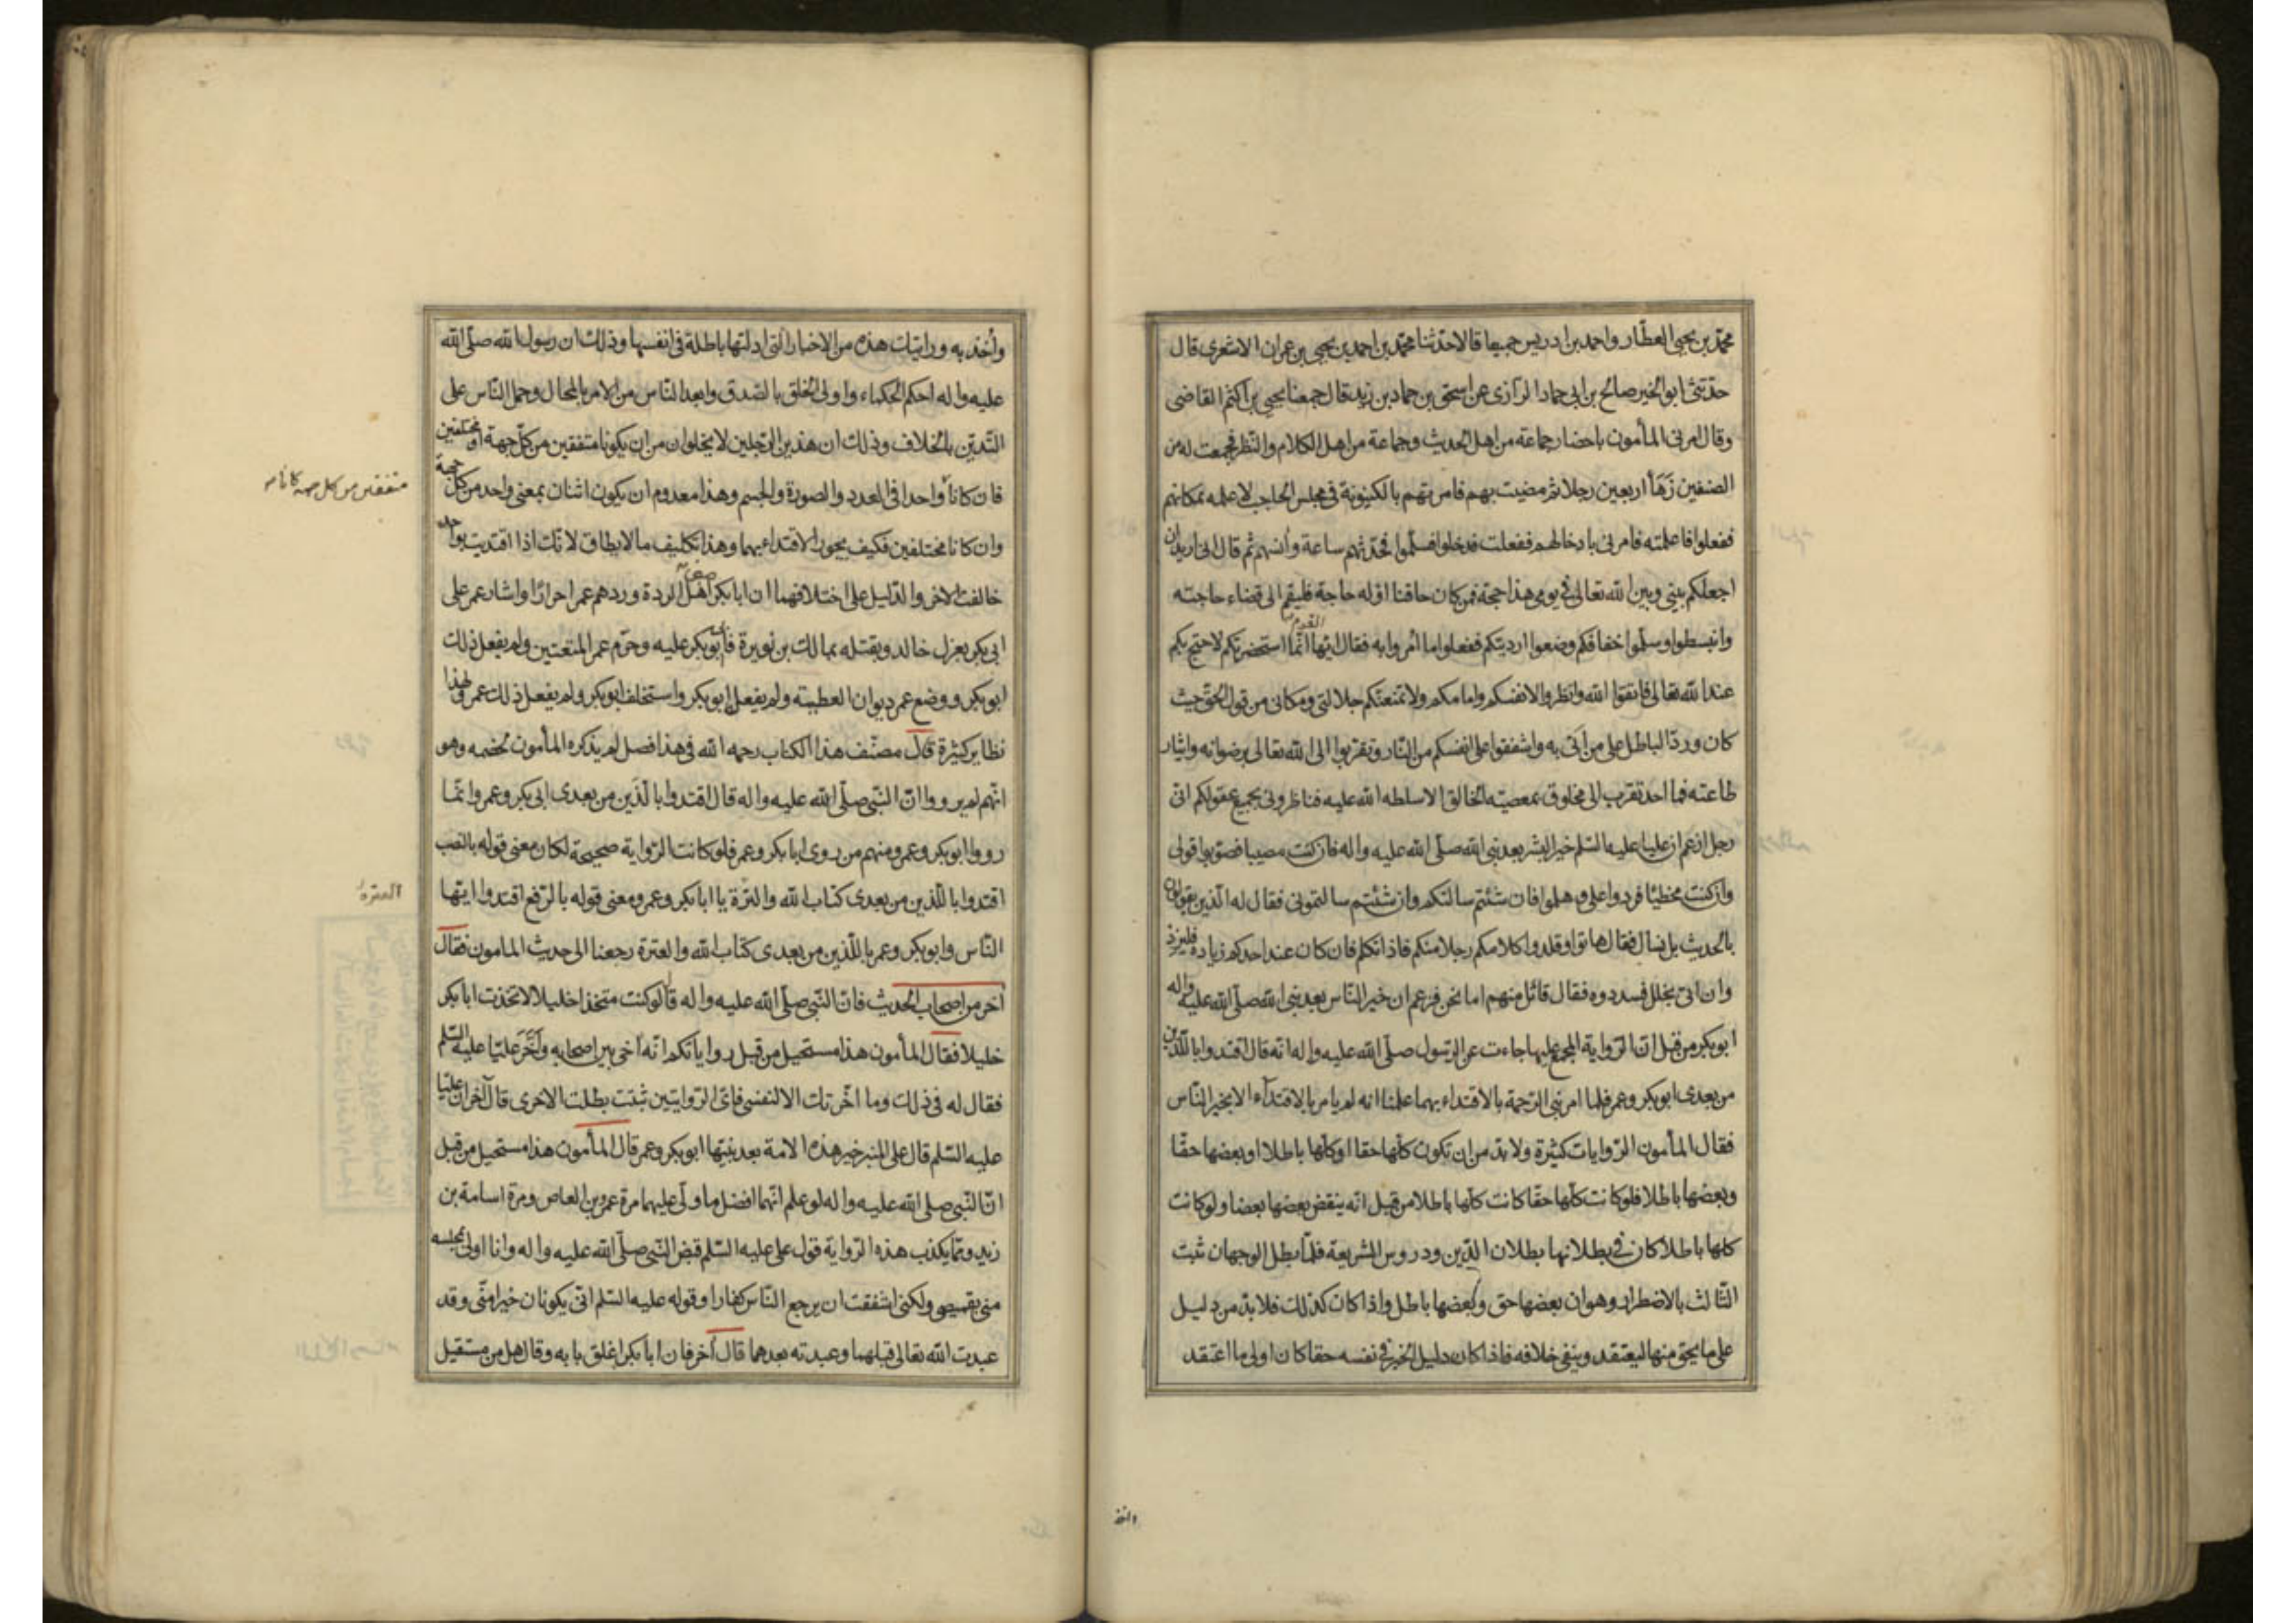 محمّد بن يحيى العطّار واحمد بن ادريس جميعا قالا حدّثنا محمّد بن احمد بن يحيى بن عمران الاشعرى قال
حدّثنى ابو الخير صالح بن ابى حماد الرّازى عن اسحق بن حماد بن زيد قال جمعنا يحيى بن اكثم القاضى
وقال امرنى المأمون باحضار جماعة من اهل الحديث وجماعة من اهل الكلام والنّظر فجمعت له من
الصنفين زَهَآ اربعين رجلا ثم مضيت بهم فامرتهم بالكينونة فى مجلس الحاجب لاعلمه بمكانهم
ففعلوا فاعلمته فامرنى بادخالهم ففعلت فدخلوا فسلّموا فحدّثهم ساعة وانسهم ثم قال انى اريد ان
اجعلكم بينى وبين الله تعالى فى يومى هذا حجة فمن كان حاقنا او له حاجة فليقم الى قضاء حاجته
وانبسطوا وسلّوا خفافكم وضعوا ارديتكم ففعلوا ما امروا به فقال ايّها القوم انّما استحضرتكم لاحتج بكم
عند الله تعالى فاتقوا الله وانظروا لانفسكم وامامكم ولا تمنعنّكم جلالتى ومكانى من قول الحقّ حيث
كان وردّ الباطل على من اَتَى به واشفقوا على انفسكم من النّار وتقرّبوا الى الله تعالى برضوانه وايثار
طاعته فما احد تقرب الى مخلوق بمعصيّة الخالق الا سلطه الله عليه فناظرونى بجميع عقولكم انّى
رجل ازعم ان عليا عليه السّلم خير البشر بعد نبى الله صلّى الله عليه واله فان كنت مصيبا فصوّبوا قولى
وان كنت مخطيًا فردّوا علىّ وهلموا فان شئتم سالتكم وان شئتم سالتمونى فقال له الّذين يقولون
بالحديث بل نسال فقال هاتوا وقلدوا كلامكم رجلا منكم فاذا تكلم فان كان عند احدكم زيادة فليزد
وان اتى بخلل فسددوه فقال قائل منهم اما نحن فنزعم ان خير النّاس بعد نبى الله صلّى الله عليه واله
ابو بكر من قبل انّ الرّواية المجمع عليها جاءت عن الرّسول صلّى الله عليه واله انّه قال اقتدوا باللّذين
من بعدى ابو بكر وعمر فلما امر نبى الرّحمة بالاقتداء بهما علمنا انه لم يامر بالاقتدآء الا بخير النّاس
فقال المأمون الرّوايات كثيرة ولا بدّ من ان تكون كلّها حقا او كلّها باطلا او بعضها حقّا
وبعضها باطلا فلو كانت كلّها حقّا كانت كلّها باطلا من قبل انّه ينقض بعضها بعضا ولو كانت
كلها باطلا كان فى بطلانها بطلان الدّين ودروس الشريعة فلمّا بطل الوجهان ثبت
الثّالث بالاضطرار وهو ان بعضها حق وبعضها باطل واذا كان كذلك فلا بدّ من دليل
على ما يحق منها ليعتقد وينفى خلافه فاذا كان دليل الخبر فى نفسه حقا كان اولى ما اعتقد
واُخذ به وروايات هذه من الاخبار الّتى ادلتها باطلة فى انفسها وذلك ان رسول الله صلّى الله
عليه واله احكم الحكماء واولى الخلق بالصّدق وابعد النّاس من الامر بالمحال وحمل النّاس على
التّديّن بالخلاف وذلك ان هذين الرّجلين لا يخلوان من ان يكونا متفقين من كلّ جهة او مختلفين
فان كانا واحدا فى العدد والصورة والجسم وهذا معدوم ان يكون اثنان بمعنى واحد من كلّ جهة
متفقين من كل جهة كانا
وان كانا مختلفين فكيف يجوز الاقتداء بهما وهذا تكليف ما لا يطاق لانّك اذا اقتديت بواحد
خالفت الاخر والدّليل على اختلافهما ان ابا بكر اهل الردة وردهم عمر احرارًا واشار عمر على
ابى بكر بعزل خالد وبقتله بمالك بن نويرة فأبى ابو بكر عليه وحرّم عمر المتعتين ولم يفعل ذلك
ابو بكر ووضع عمر ديوان العطيته ولم يفعل ابو بكر واستخلف ابو بكر ولم يفعل ذلك عمر ولهذا
نظاير كثيرة قال مصنّف هذا الكتاب رحمه الله فى هذا فصل لم يذكره المأمون لخصمه وهو
انّهم لم يرووا انّ النّبى صلّى الله عليه واله قال اقتدوا بالّذَين من بعدى ابى بكر وعمر وانّما
رووا ابو بكر وعمر ومنهم من روى ابا بكر وعمر فلو كانت الرّواية صحيحة لكان معنى قوله بالنصب
اقتدوا باللّذين من بعدى كتاب الله والترة يا ابا بكر وعمر ومعنى قوله بالرّفع اقتدوا ايّها
العترة
النّاس وابو بكر وعمر باللّذين من بعدى كتاب الله والعترة رجعنا الى حديث المامون فقال
آخر من اصحاب الحديث فانّ النّبى صلّى الله عليه واله قال لو كنت متخذا خليلا لاتخذت ابا بكر
خليلا فقال المأمون هذا مستحيل من قبل رواياتكم انّه آخى بين اصحابه وأخَّرَ عليّا عليه السّلم
فقال له فى ذلك وما اخّرتك الا لنفسى فاىّ الرّوايتين ثبتت بطلت الاخرى قال آخر انّ عليّا
عليه السّلم قال على المنبر خير هذه الامة بعد نبيّها ابو بكر وعمر قال المأمون هذا مستحيل من قبل
انّ النّبى صلى الله عليه واله لو علم انّهما افضل ما ولّى عليهما مرة عمرو بن العاص ومرة اسامة بن
زيد وممّا يكذب هذه الرّواية قول على عليه السّلم قبض النّبى صلّى الله عليه واله وانا اولى بمجلسه
منى بقميصى ولكنى اشفقت ان يرجع النّاس كفارا وقوله عليه السّلم انّى يكونان خيرا منّى وقد
عبدت الله تعالى قبلهما وعبدته بعدهما قال آخر فان ابا بكر اغلق بابه وقال هل من مستقيل